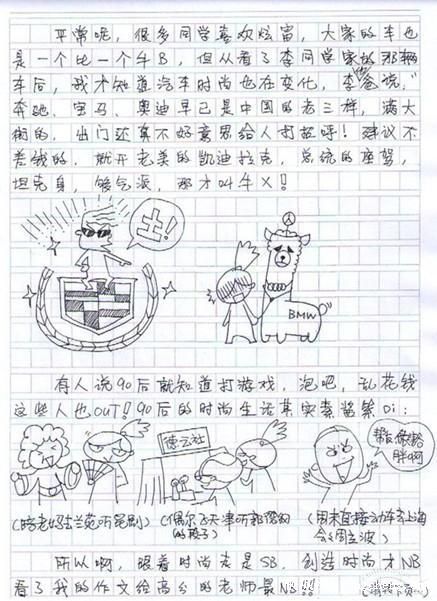 平常呢，很多同学喜欢炫富，大家的车也
是一个比一个牛B，但从看了李同学家的那辆
车后，我才知道汽车时尚也在变化，李爸说，"
奔驰、宝马、奥迪早已是中国的老三样，满大
街的，出门还真不好意思给人打招呼！建议不
差钱的，就开老美的凯迪拉克，总统的座驾，
坦克身，够气派，那才叫牛X！
土！
BMW
有人说90后就知道打游戏，泡吧，乱花钱
这些人也out！90后的时尚生活其实素酱紫di：
德云社
帮我做粉
胖啊
(陪老妈去兰苑听昆剧)
(偶尔飞天津听郭德纲
的段子)
(周末直接动车去上海
会周立波)
所以啊，跟着时尚走是SB，创造时尚才NB
看了我的作文给高分的老师最NB!!